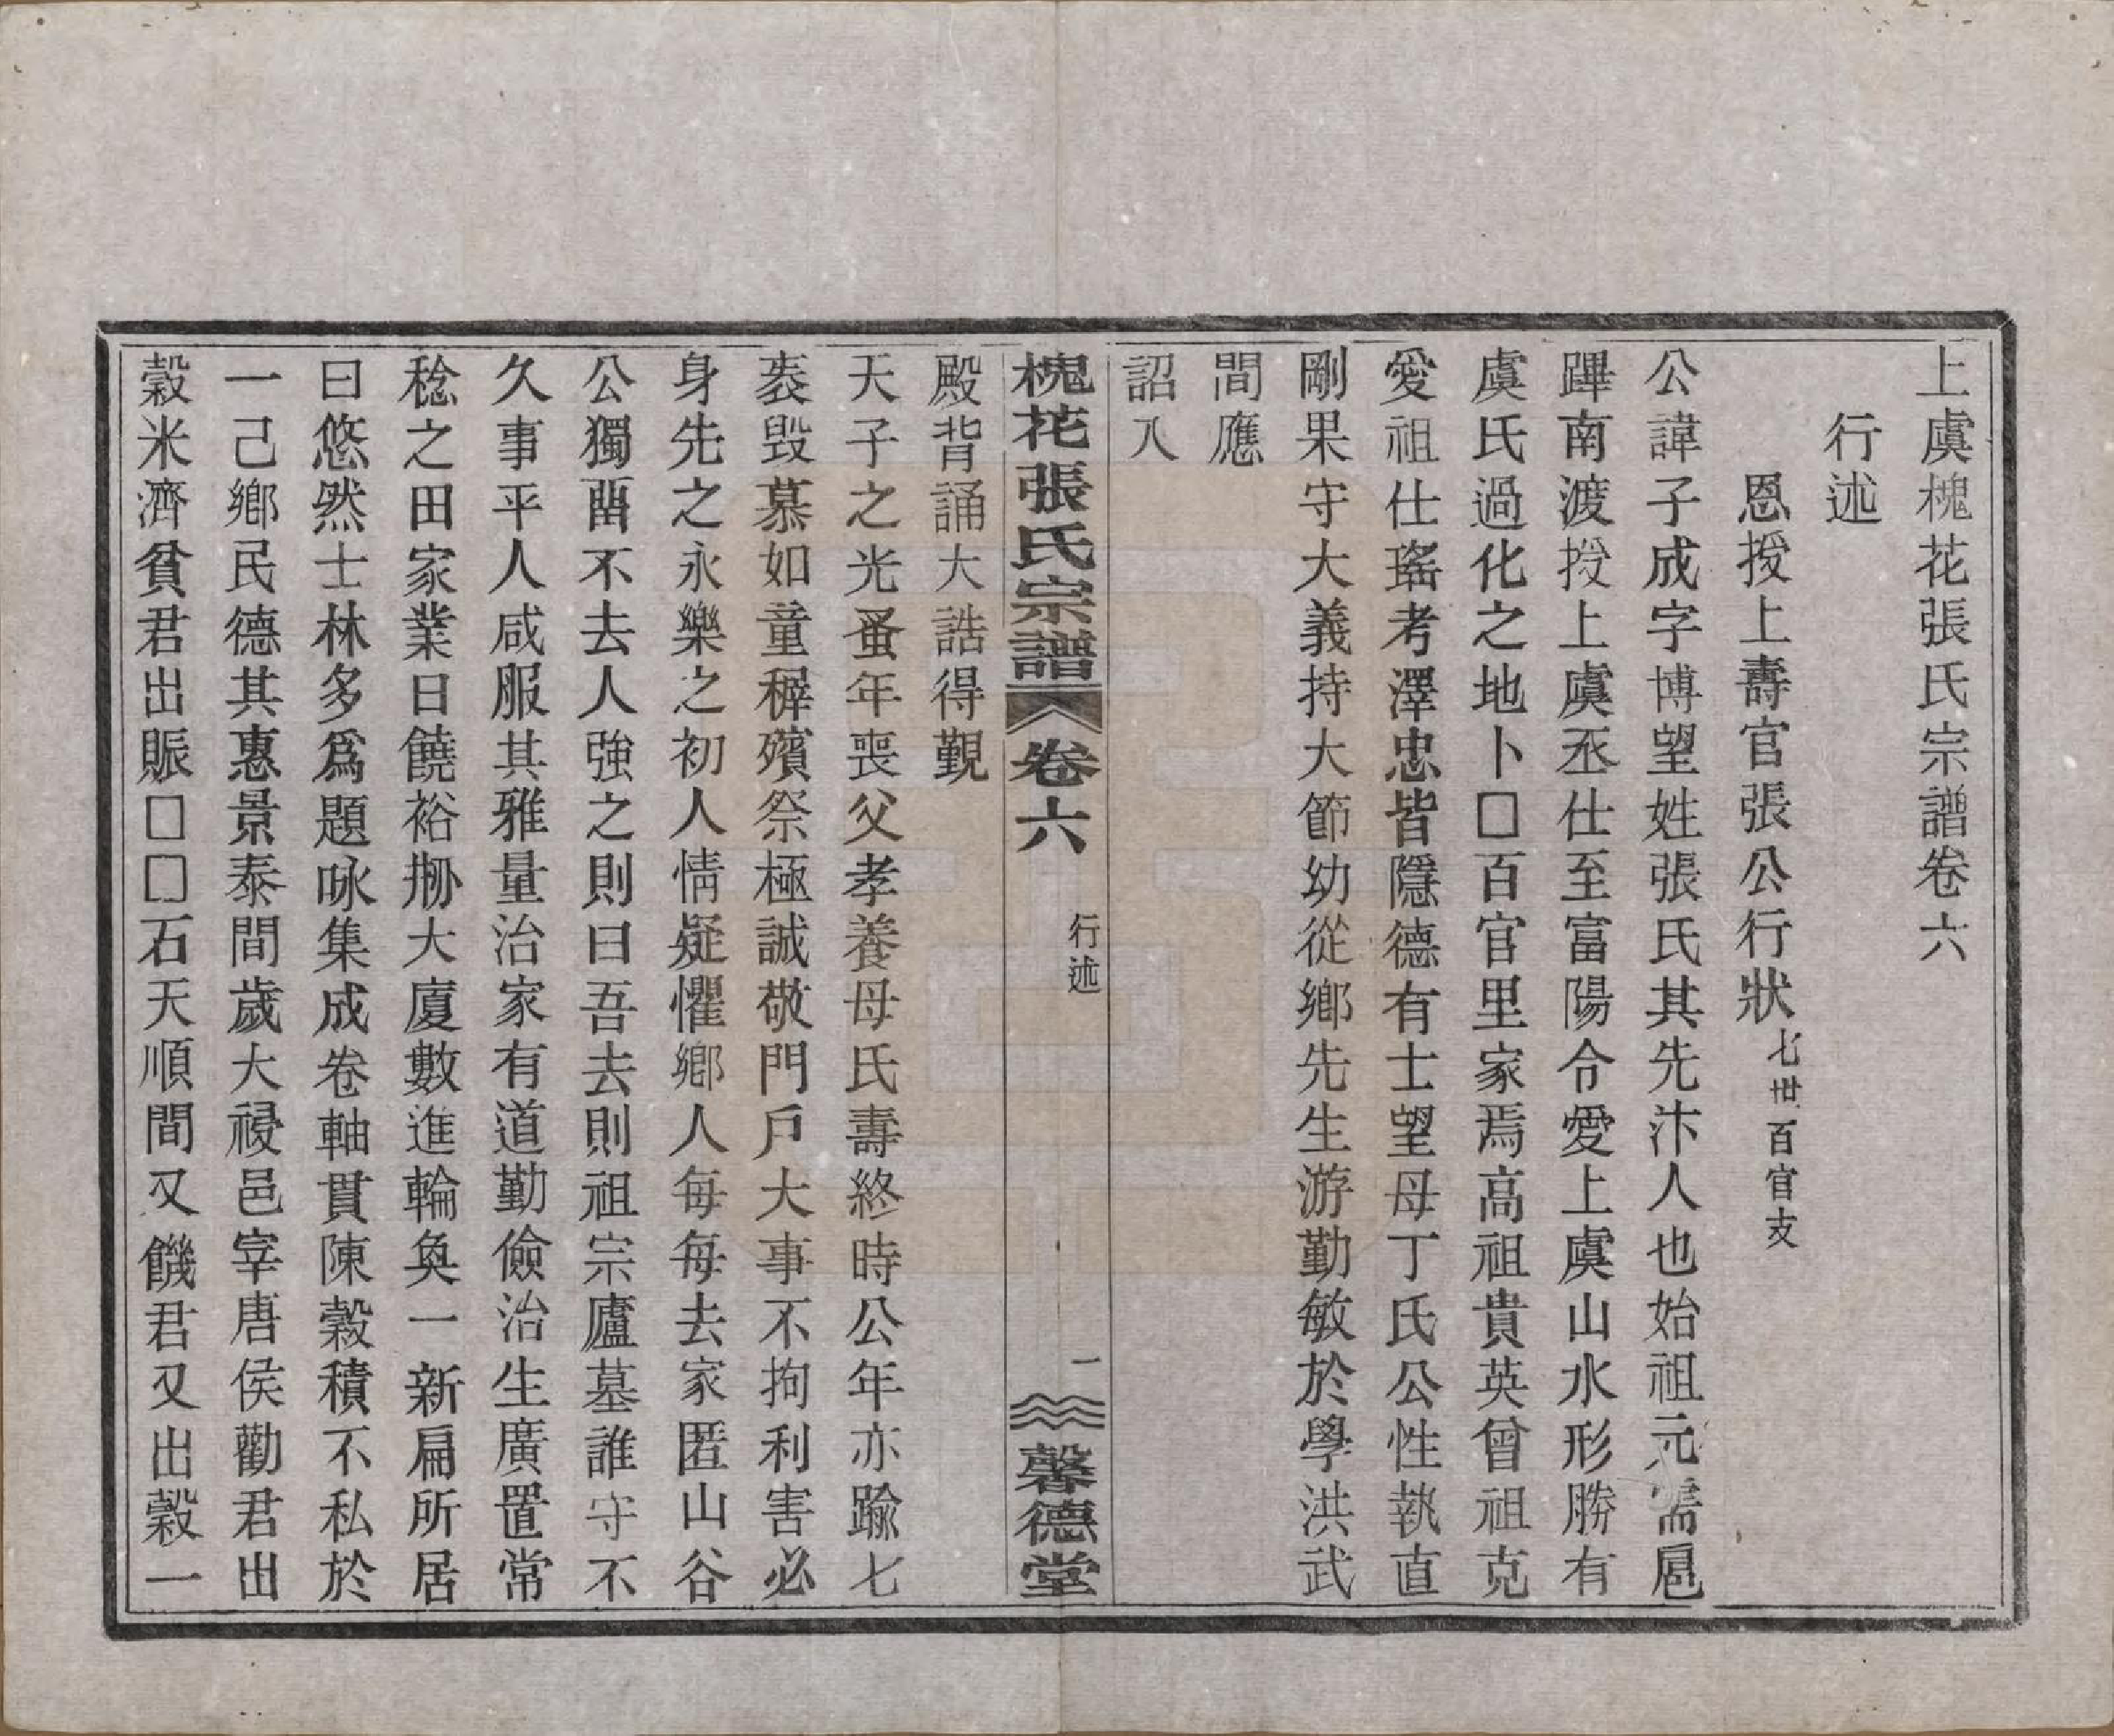 上虞槐花張氏宗譜卷六
行述
恩授上壽官張公行狀七世百官支
公諱子成字博望姓張氏其先汴人也始祖元需扈
蹕南渡授上虞丞仕至富陽令愛上虞山水形勝有
虞氏過化之地卜□百官里家焉高祖貴英曾祖克
愛祖仕瑤考澤忠皆隱德有士望母丁氏公性執直
剛果守大義持大節幼從鄉先生游勤敏於學洪武
間應
詔入
槐花張氏宗譜 卷六 行述 一 馨德堂
殿背誦大誥得覲
天子之光蚤年喪父孝養母氏壽終時公年亦踰七
袠毀慕如童穉殯祭極誠敬門戶大事不拘利害必
身先之永樂之初人情疑懼鄉人每每去家匿山谷
公獨畱不去人強之則曰吾去則祖宗廬墓誰守不
久事平人咸服其雅量治家有道勤儉治生廣置常
稔之田家業日饒裕刱大廈數進輪奐一新扁所居
曰悠然士林多爲題咏集成卷軸貫陳穀積不私於
一己鄉民德其惠景泰間歲大祲邑宰唐侯勸君出
穀米濟貧君出賑□□石天順間又饑君又出穀一